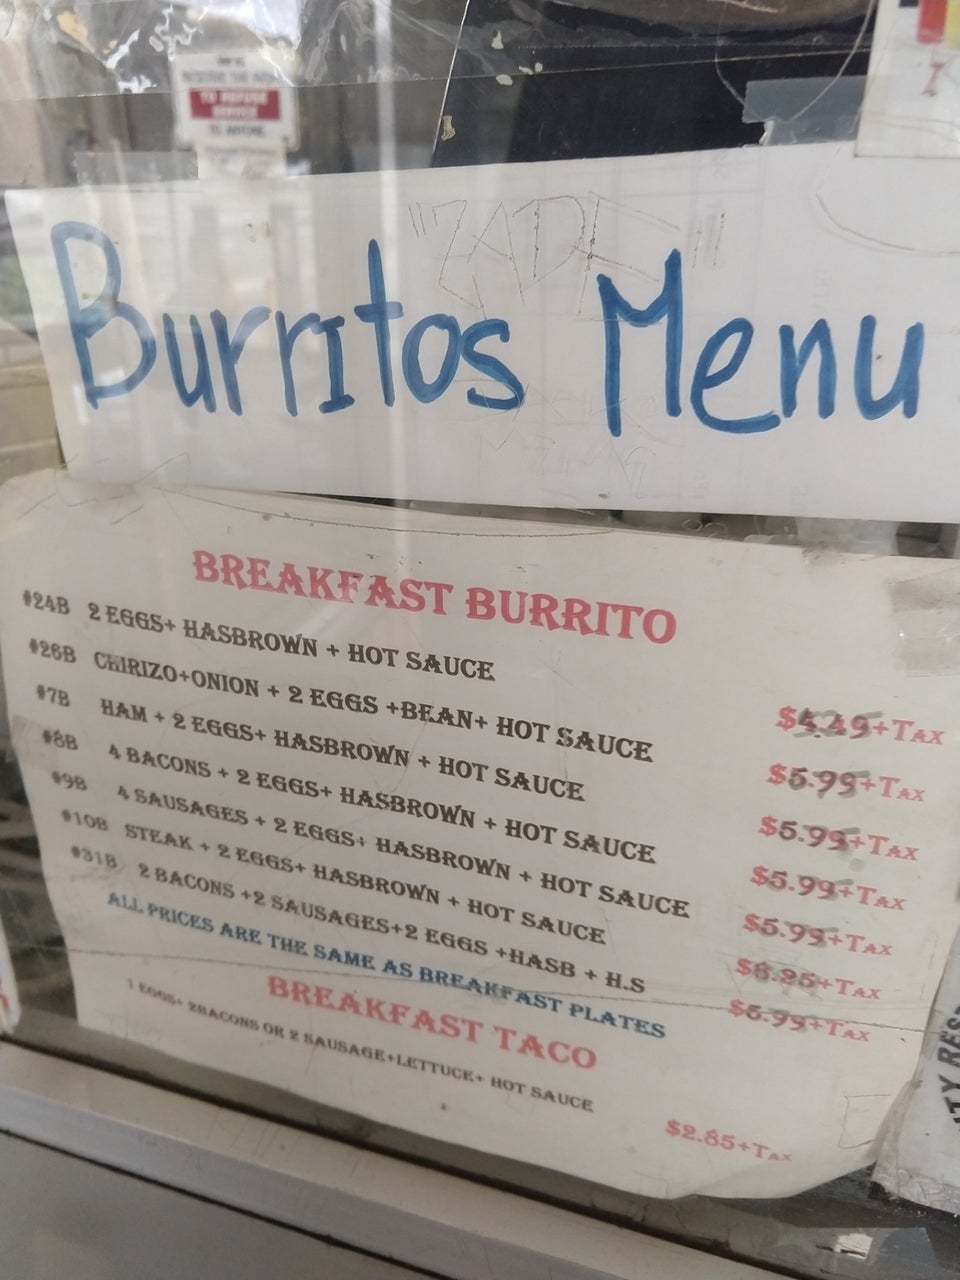 TO REFUSE
SERVICE
TO ANYONE
Burritos Menu
BREAKFAST BURRITO
#24B 2 EGGS+ HASBROWN + HOT SAUCE $4.49+TAX
#26B CHIRIZO+ONION + 2 EGGS +BEAN+ HOT SAUCE $5.99+TAX
#7B HAM + 2 EGGS+ HASBROWN + HOT SAUCE $5.99+TAX
#8B 4 BACONS + 2 EGGS+ HASBROWN + HOT SAUCE $5.99+TAX
#9B 4 SAUSAGES + 2 EGGS+ HASBROWN + HOT SAUCE $5.99+TAX
#10B STEAK + 2 EGGS+ HASBROWN + HOT SAUCE +TAX
#31B 2 BACONS +2 SAUSAGES+2 EGGS +HASB + H.S +TAX
ALL PRICES ARE THE SAME AS BREAKFAST PLATES
BREAKFAST TACO
1 EGGS+ 2BACONS OR 2 SAUSAGE+LETTUCE+ HOT SAUCE
$2.85+TAX